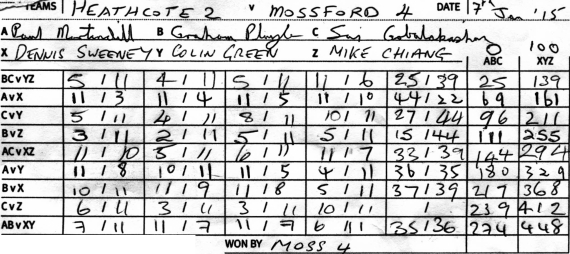 TEAMS HEATHCOTE 2 V MOSSFORD 4 DATE 7th Jan '15
A Paul B Graham C Sai 0 100
X DENNIS SWEENEY Y COLIN GREEN Z MIKE CHIANG ABC XYZ
BCvYZ 5 / 11 4 / 11 5 / 11 11 / 6 25 / 39 25 139
AvX 11 / 3 11 / 4 11 / 5 11 / 10 44 / 22 69 161
CvY 5 / 11 4 / 11 8 / 11 10 / 11 27 / 44 96 211
BvZ 3 / 11 2 / 11 5 / 11 5 / 11 15 / 44 111 255
ACvXZ 11 / 10 5 / 11 6 / 11 11 / 7 33 / 39 144 294
AvY 11 / 8 10 / 11 11 / 5 4 / 11 36 / 35 180 329
BvX 10 / 11 11 / 9 11 / 8 5 / 11 37 / 39 217 368
CvZ 6 / 11 3 / 11 3 / 11 10 / 11 / 239 412
ABvXY 7 / 11 11 / 7 11 / 7 6 / 11 35 / 36 274 448
WON BY MOSS 4